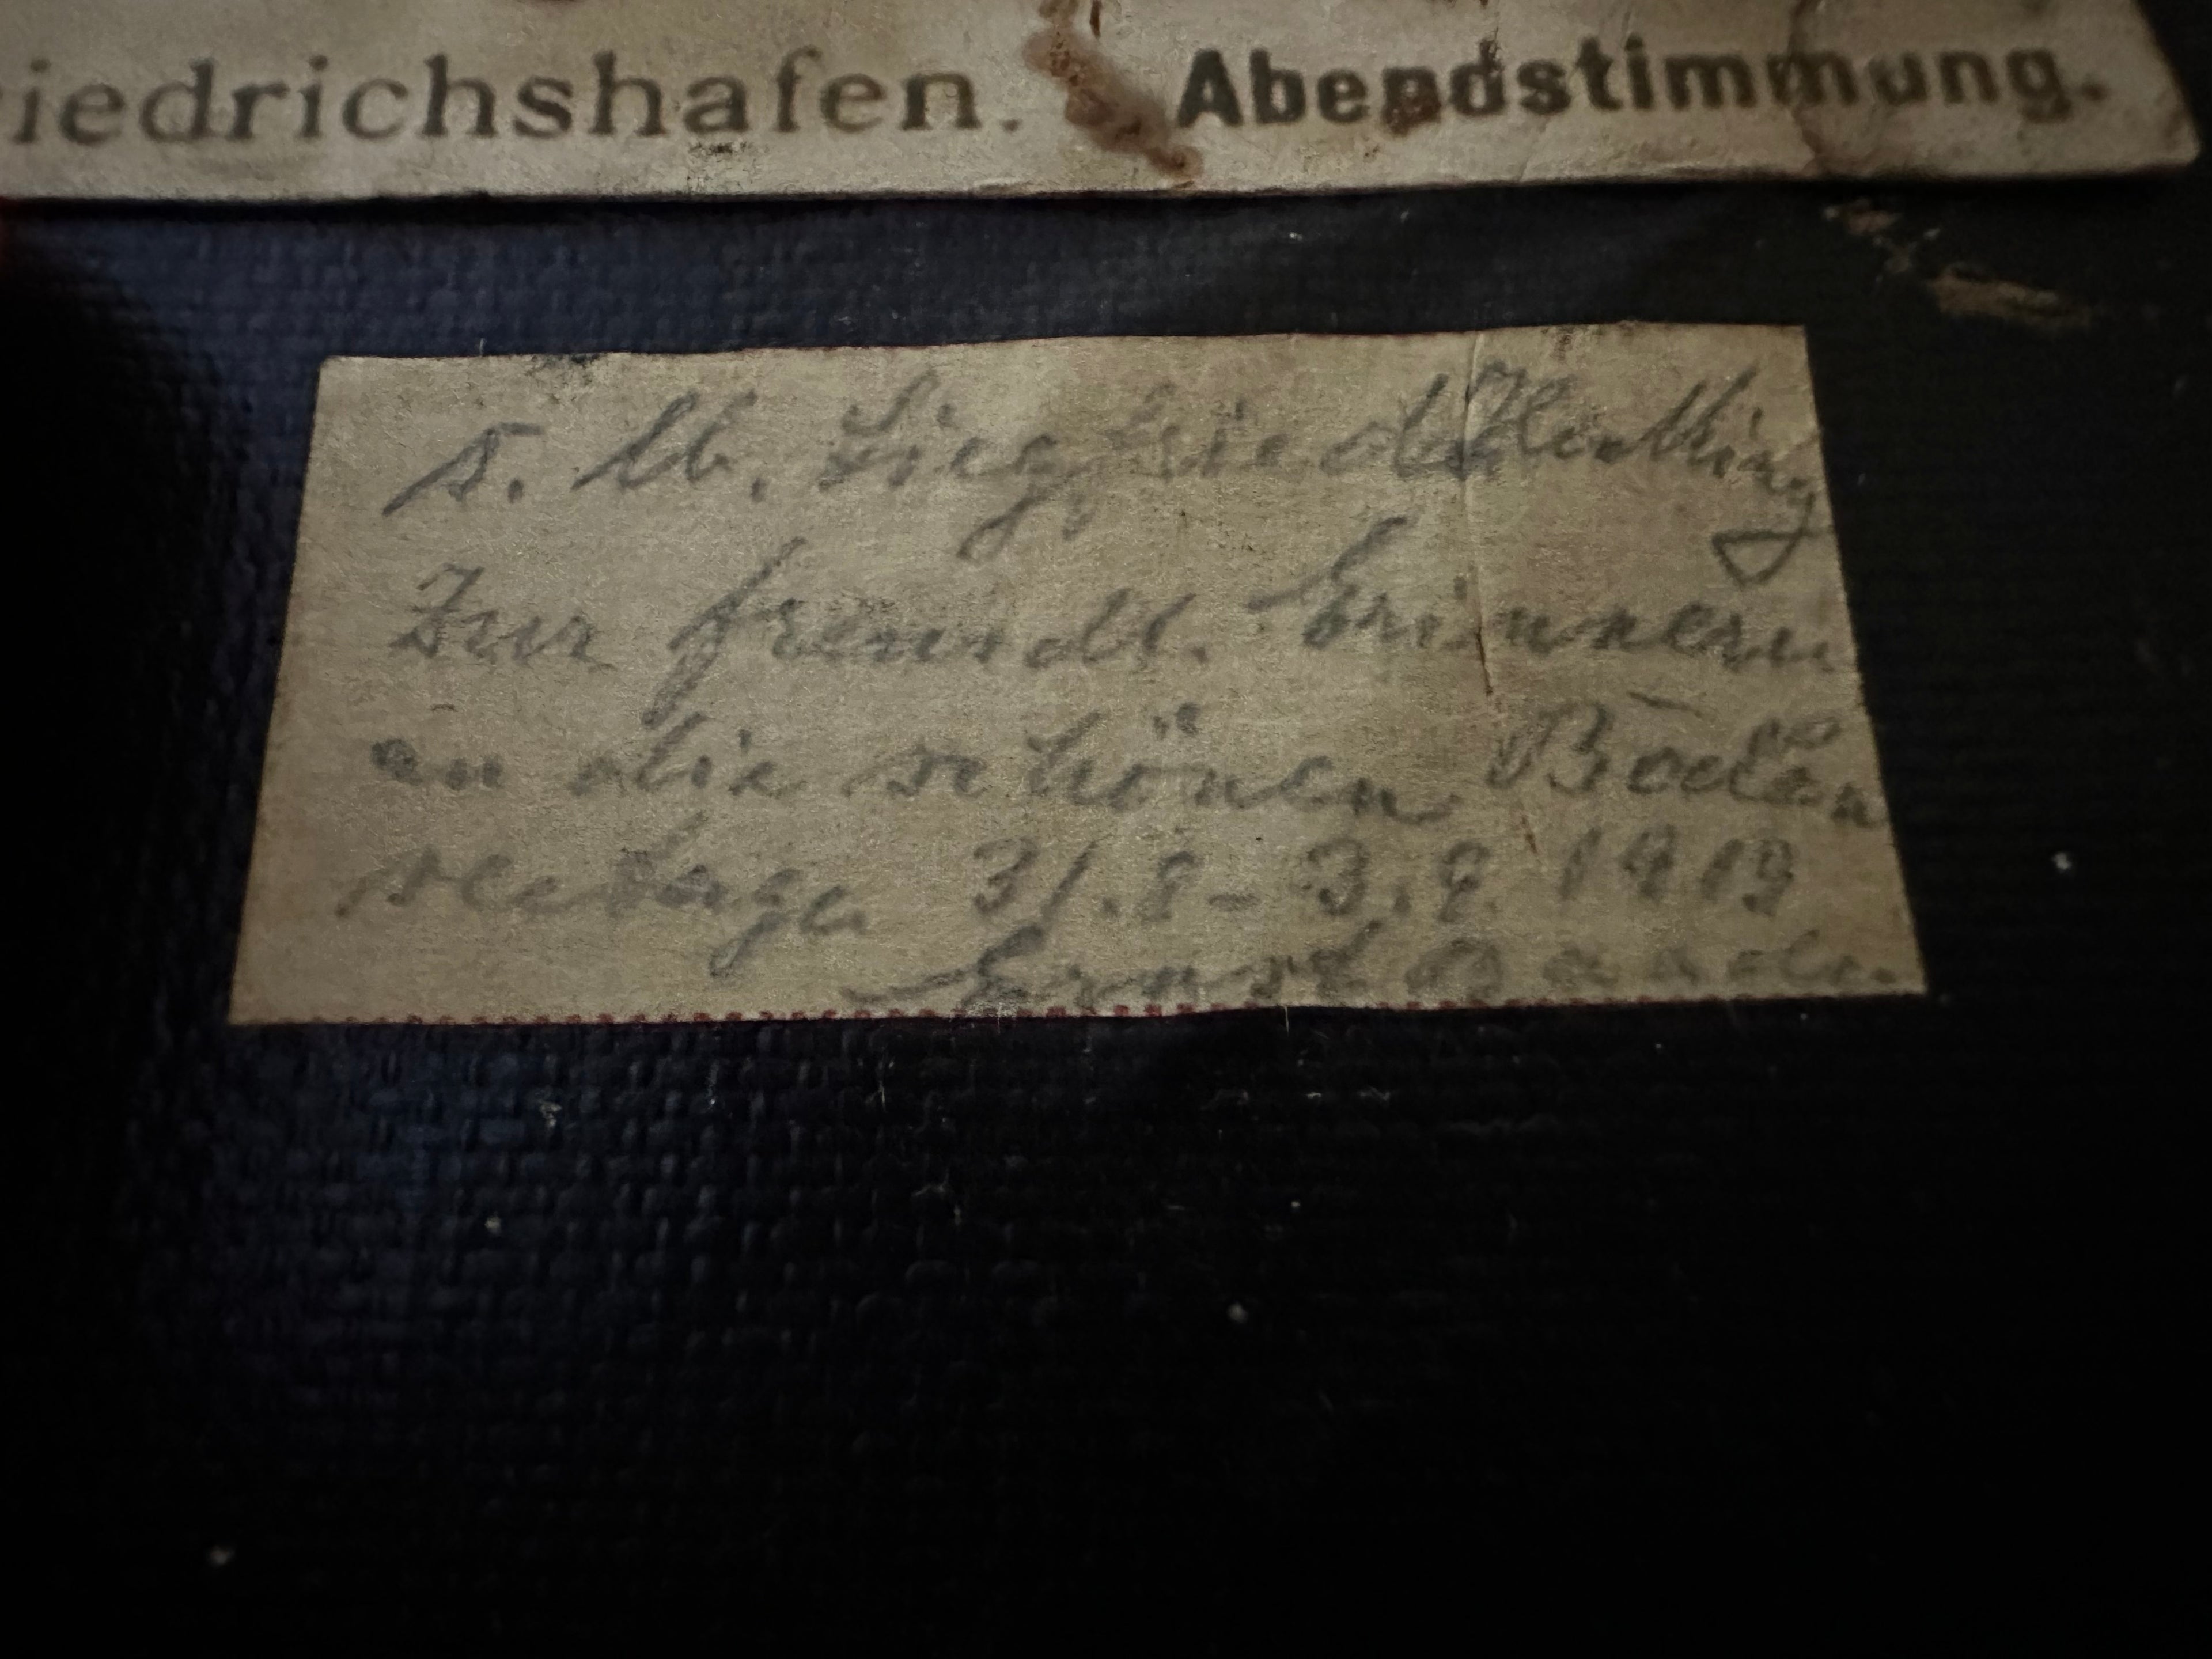 iedrichshafen. Abendstimmung.
s. lb. Siegfried
Zur freundl. Erinnern
an die schönen Boden
seetage 31.8–3.9. 1919
Ernst